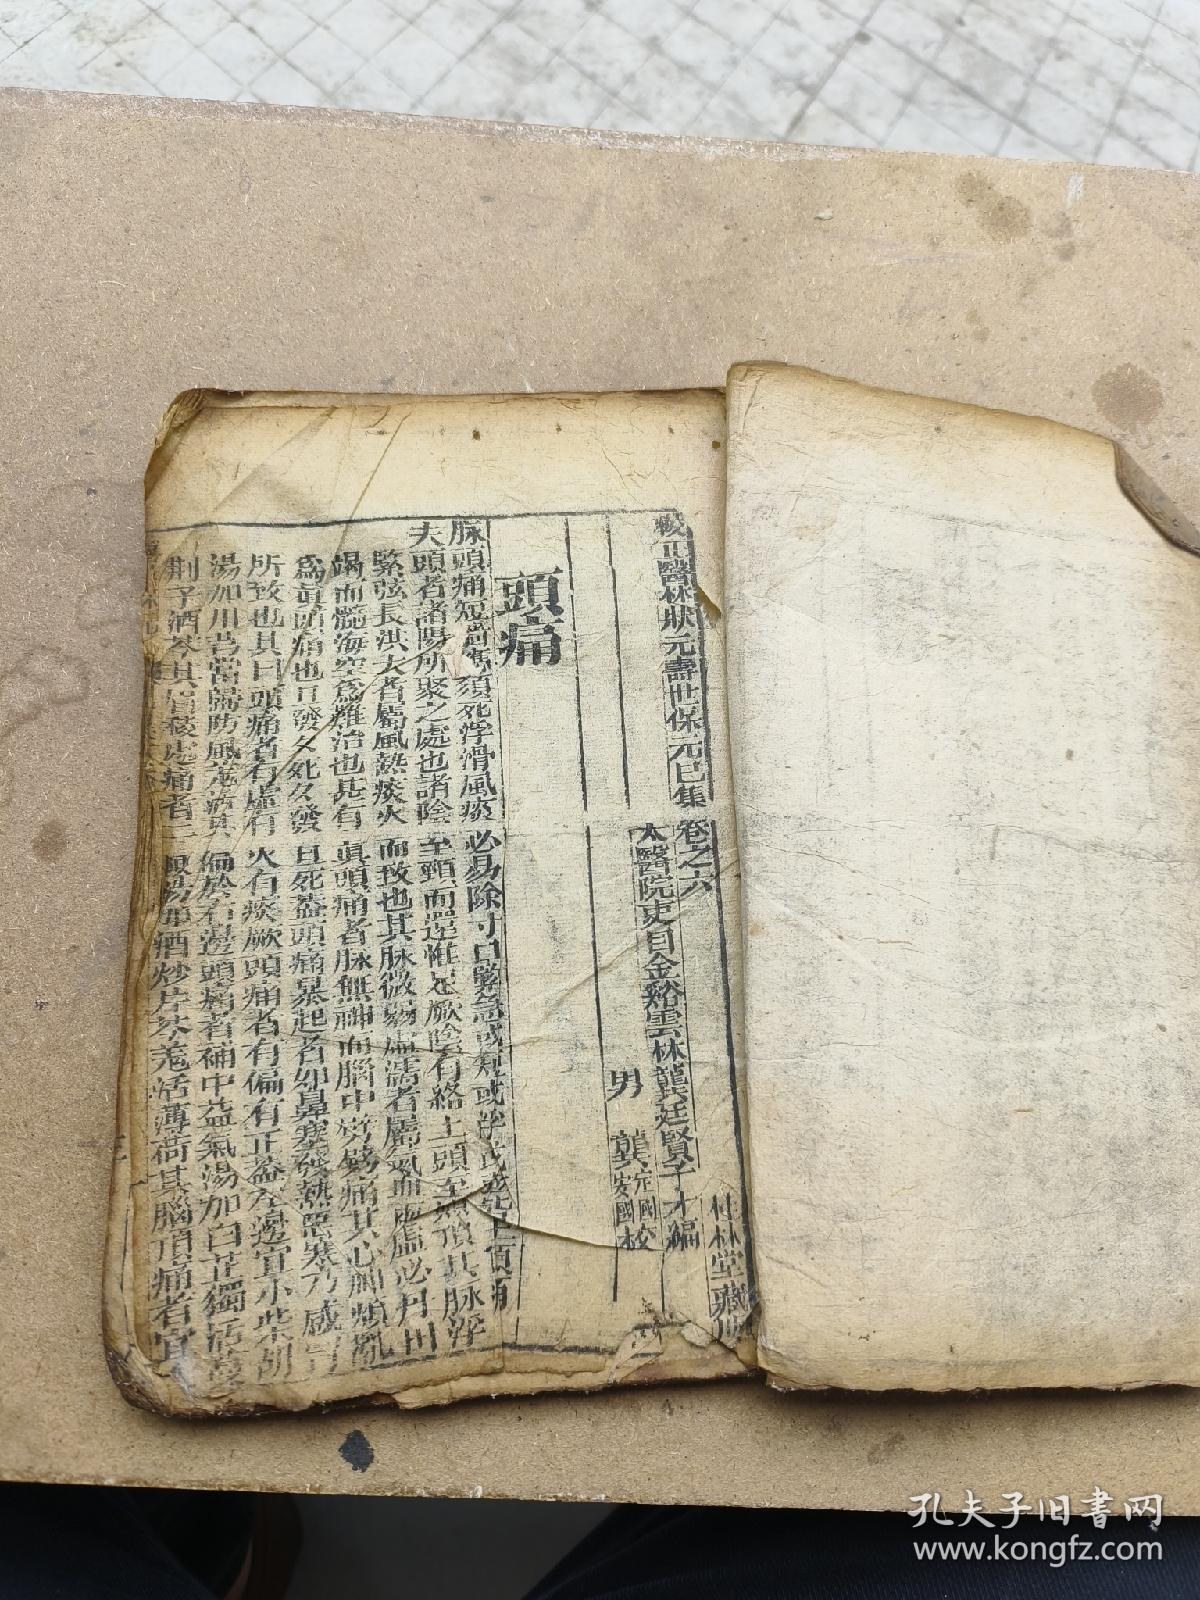 校正醫林狀元壽世保元巳集 卷之六 桂林堂藏
太醫院吏目金谿雲林龔廷賢子才編
男 龔定國安國校
頭痛
脉頭痛短濇須死浮滑風痰必易除寸口緊急或短或
夫頭者諸陽所聚之處也諸陰至頸而還惟足厥陰有絡上頭至頂其脉浮
緊弦長洪大者屬風熱痰火而致也其脉微弱虛濡者屬氣血兩虛必丹田
竭而髓海空為難治也甚有真頭痛者脉無神而腦中劈劈痛其心神煩亂
為真頭痛也旦發夕死夕發旦死蓋頭痛暴起者如鼻塞發熱惡寒乃感冒
所致也其曰頭痛者有虛有火有痰厥頭痛者有偏有正蓋左邊宜小柴胡
湯加川芎當歸防風羌活其偏於右邊頭痛者補中益氣湯加白芷獨活蔓
荊子酒芩其眉稜處痛者二陳湯加酒炒片芩羌活薄荷其腦頂痛者宜
孔夫子旧書网
www.kongfz.com